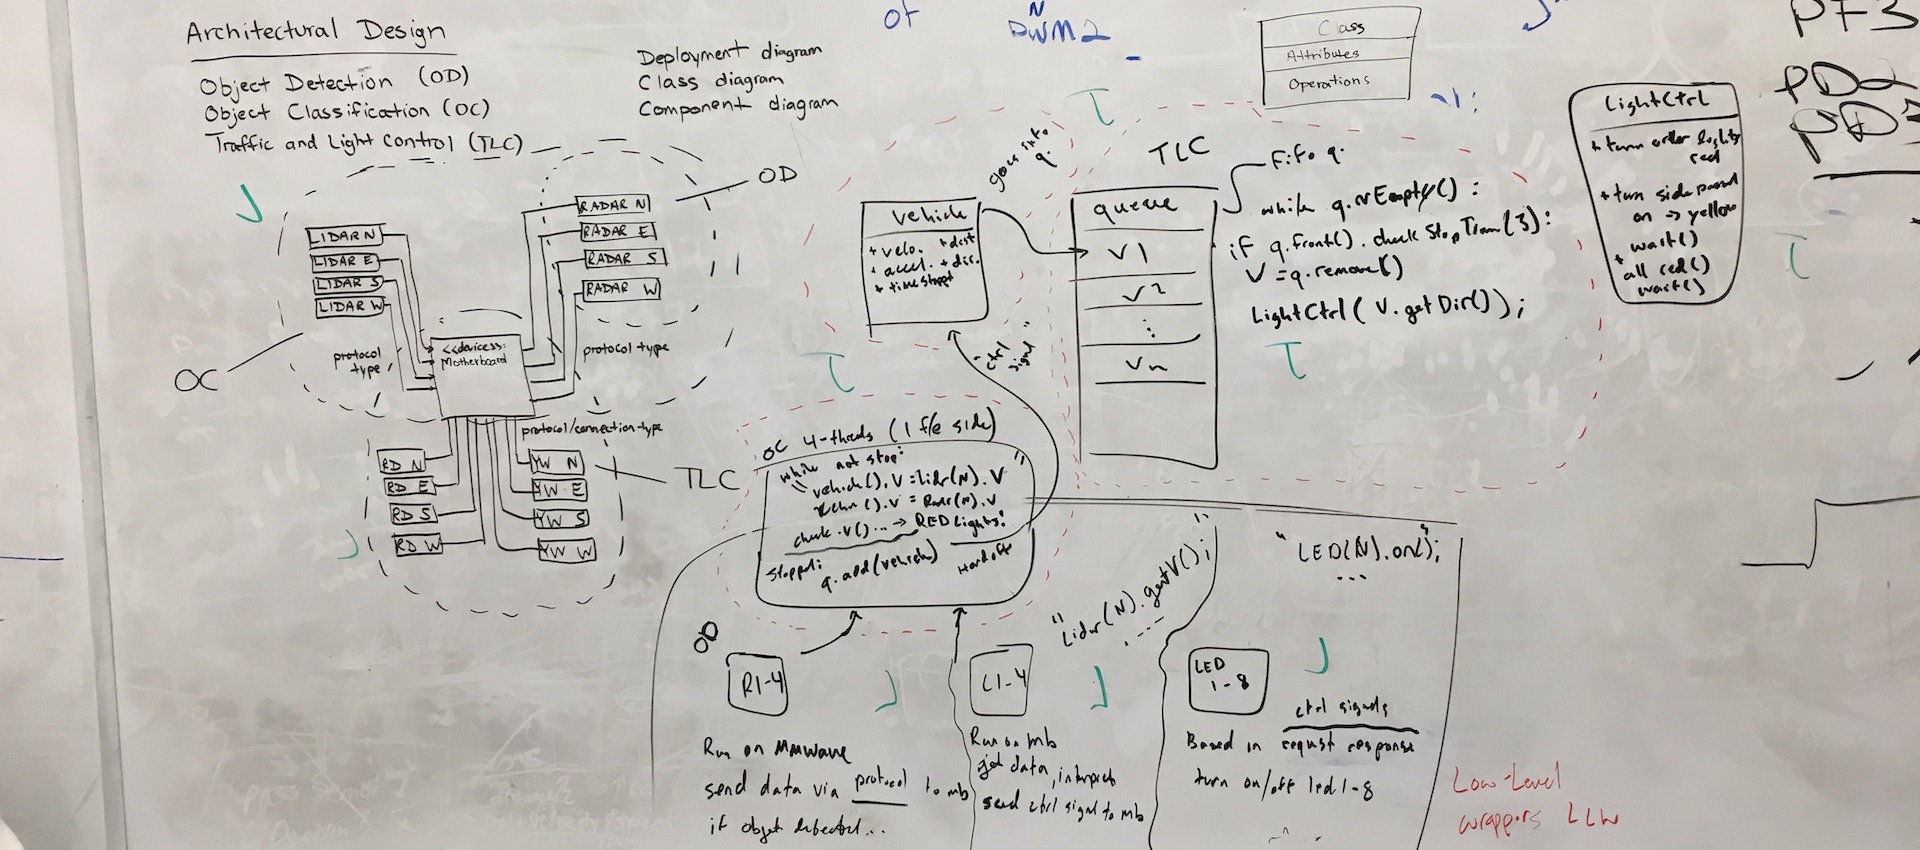 Architectural Design
Object Detection (OD)
Object Classification (OC)
Traffic and Light Control (TLC)
Deployment diagram
Class diagram
Component diagram
of
N
DWM2
Class
Attributes
Operations
PF3
PD2
PD3
OD
LIDAR N
LIDAR E
LIDAR S
LIDAR W
RADAR N
RADAR E
RADAR S
RADAR W
protocol
type
<<devices>:
Motherboard
protocol type
OC
protocol/connection type
RD N
RD E
RD S
RD W
YW N
YW E
YW S
YW W
TLC
goes into
q.
vehicle
+ velo. + dist
+ accel. + dir.
"ctrl
signl"
TLC
queue
V1
V2
⋮
Vn
Fifo q.
while q.nEmpty() :
if q.front().checkStopTram(3):
V = q.remove()
LightCtrl( V.getDir());
LightCtrl
red
on -> yellow
wait()
all red()
wait()
OC 4-threds (1 f/e side)
while not stop:
" vehicl().V = lidr(N).V "
check.V()... → RED Lights!
q.add(vehicle)
OD
R1-4
Run on MMWave
send data via protocol to mb
if objet detectet...
L1-4
Run on mb
get data, interpret
send ctrl signl to mb
"Lidar(N).getV();"
LED
1-8
ctrl signals
Based in requst response
turn on/off led 1-8
"LED(N).on();"
...
Low-Level
wrappers LLW